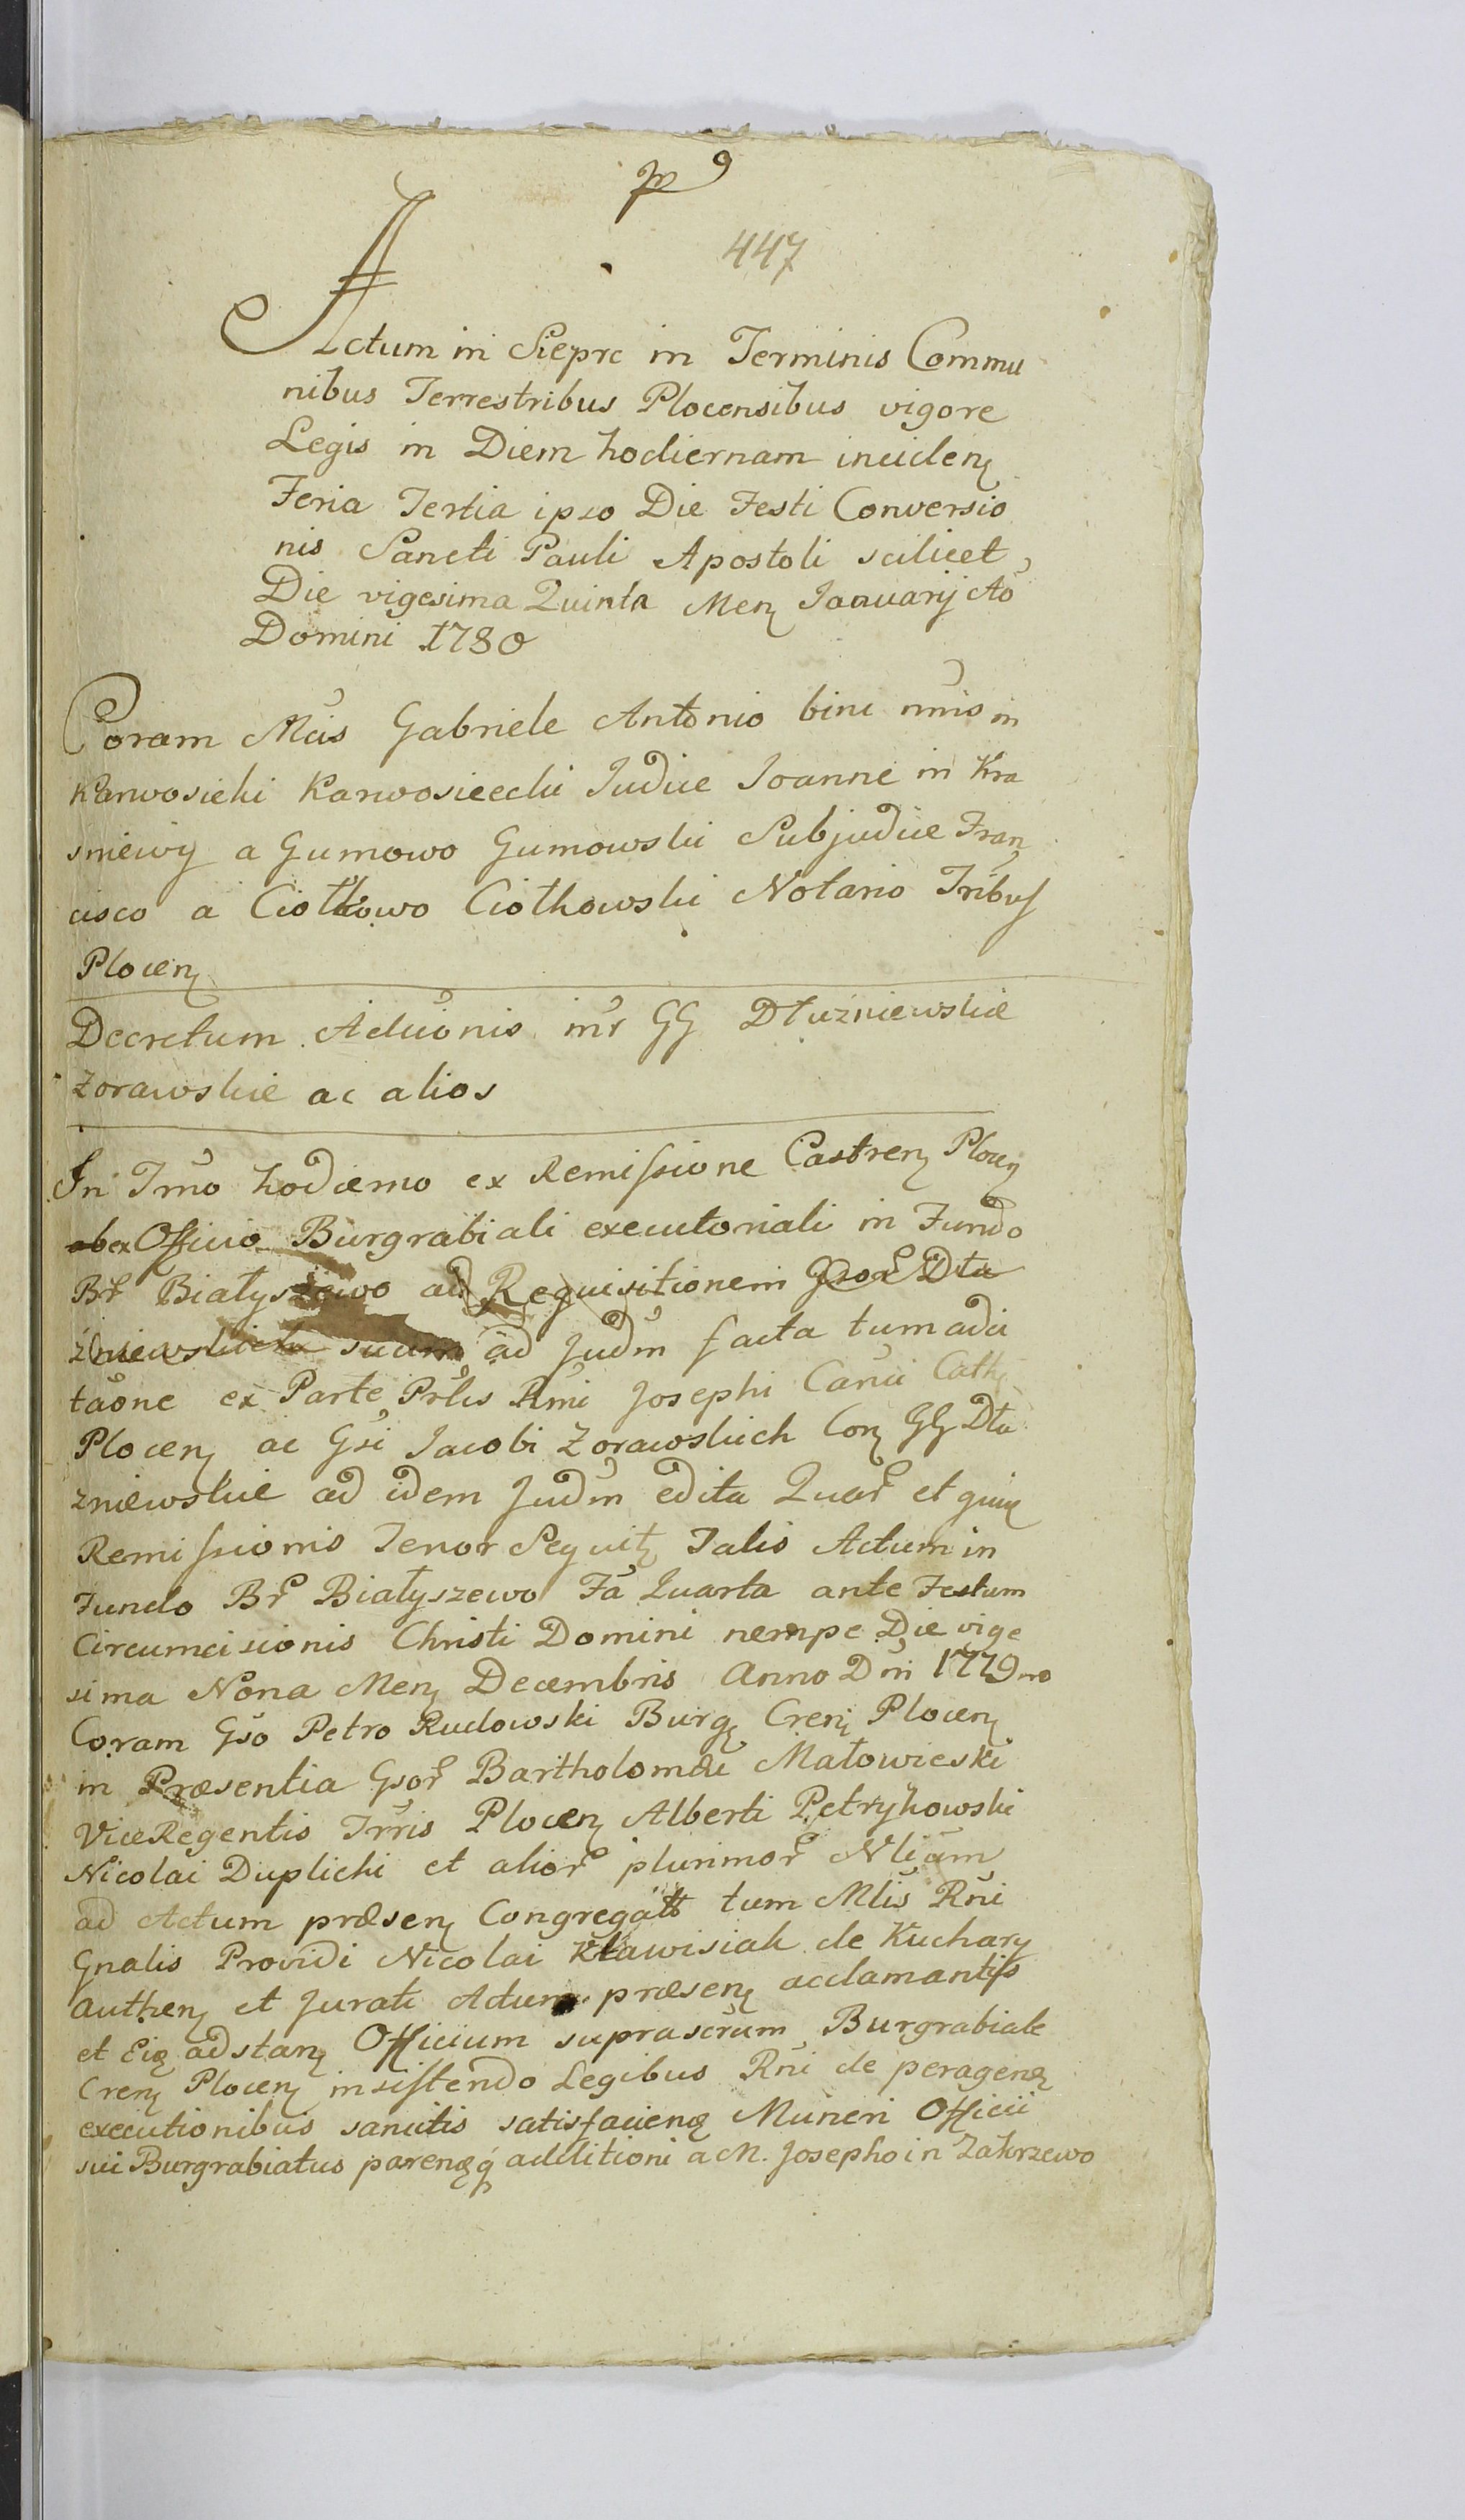 447
Actum in Sieprc in Terminis Commu
nibus Terrestribus Plocensibus vigore
Legis in Diem hodiernam inciden
Feria Tertia ipso Die Festi Conversio
nis Sancti Pauli Apostoli scilicet
Die vigesima Quinta Men Januarij Ao
Domini 1780
Coram Mcis Gabriele Antonio in
Karwosieki Karwosiecki Judice Joanne in Kra
sniewy a Gumowo Gumowski Subjudice Fran
cisco a Ciołkowo Ciołkowski Notario Tribus
Plocen
Decretum Actionis inr GG Dłuźniewskie
Zorawskie ac alios
In Tmo hodierno ex Remissione Castren Plocen
ab ex Officio Burgrabiali executoriali in Fundo
Br Białyszewo ad Requisitionem Gsor Dłu
źniewskich suam ad Judm facta tum ad ci
taone ex Parte Prlis Rmi Josephi Canci Cath
Plocen ac Gsi Jacobi Zorawskich Con GG Dłu
zniewskie ad idem Judm edita Quar et quiq
Remissionis Tenor Sequit Talis Actum in
Fundo Br Białyszewo Fa Quarta ante Festum
Circumcisionis Christi Domini nempe Die vige
sima Nona Men Decembris Anno Dni 1779no
Coram Gso Petro Rudowski Burg Cren Plocen
in Præsentia Gsor Bartholomæi Małowieski
ViceRegentis Trris Plocen Alberti Petrykowski
Nicolai Duplicki et alior plurimor Nlium
ad Actum præsen Congregatt tum Mlis Rni
Gnalis Providi Nicolai Kławisiak de Kuchary
authen et Jurati Actum præsen acclamantis
et Eiq adstan Officium suprascrum Burgrabiale
Cren Plocen insistendo Legibus Rni de peragend
executionibus sancitis satisfaciend Muneri Officii
sui Burgrabiatus parendq additioni a M. Josepho in Zakrzewo